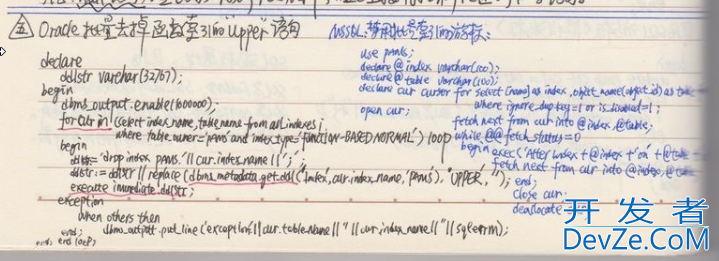 五 Oracle 批量去掉函数索引的"upper"语句
declare
ddlstr varchar(32767);
begin
dbms_output.enable(1000000);
for cur in (select index_name, table_name from all_indexes i
where table_owner='PAMS' and index_type='FUNCTION-BASED NORMAL') loop
begin
ddlstr:='drop index pams.'||cur.index_name||';';
ddlstr:=ddlstr||replace(dbms_metadata.get_ddl('index',cur.index_name,'PAMS'),'UPPER','');
execute immediate ddlstr;
exception
when others then
dbms_output.put_line('exception:'||cur.table_name||''||cur.index_name||''||sqlerrm);
end;
end loop
MSSQL:禁用批号索引的游标:
use pams;
declare @index varchar(100);
declare @table varchar(100);
declare cur cursor for select [name] as index, object_name(object_id) as table
where ignore_dup_key=1 or is_disabled=1;
open cur;
fetch next from cur into @index, @table;
while @@fetch_status=0
begin exec('Alter index'+@index+'on'+@table
fetch next from cur into @index, @table
end;
close cur.
deallocate
开发者
DevZe.CoM